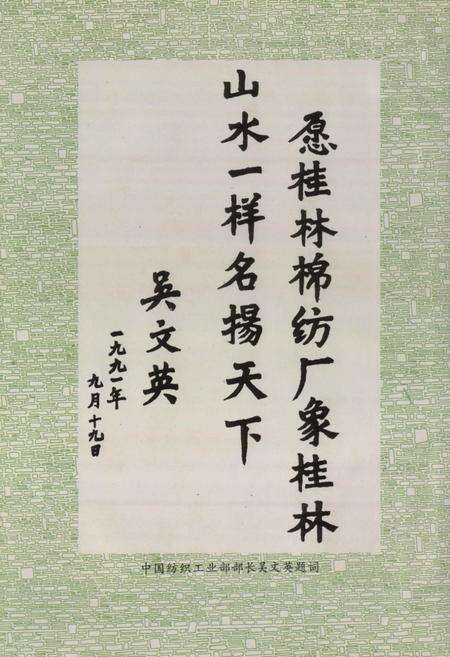 愿桂林棉纺厂象桂林
山水一样名揚天下
吴文英
一九九一年
九月十九日
中国纺织工业部部长吴文英题词